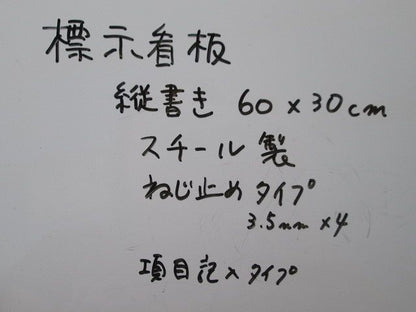 標示看板
縦書き 60×30cm
スチール製
ねじ止めタイプ
3.5mm×4
項目記入タイプ